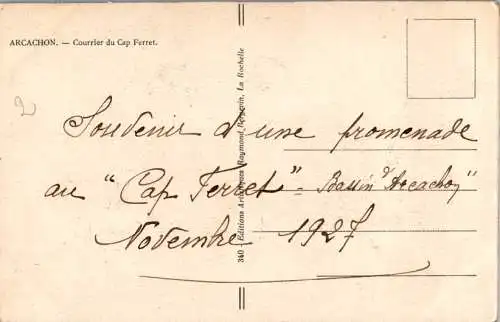 ARCACHON. — Courrier du Cap Ferret.
2
Souvenir d'une promenade
au "Cap Ferret" - Bassin d'Arcachon
Novembre 1927
340 - Editions Artistiques Raymond Bergevin, La Rochelle